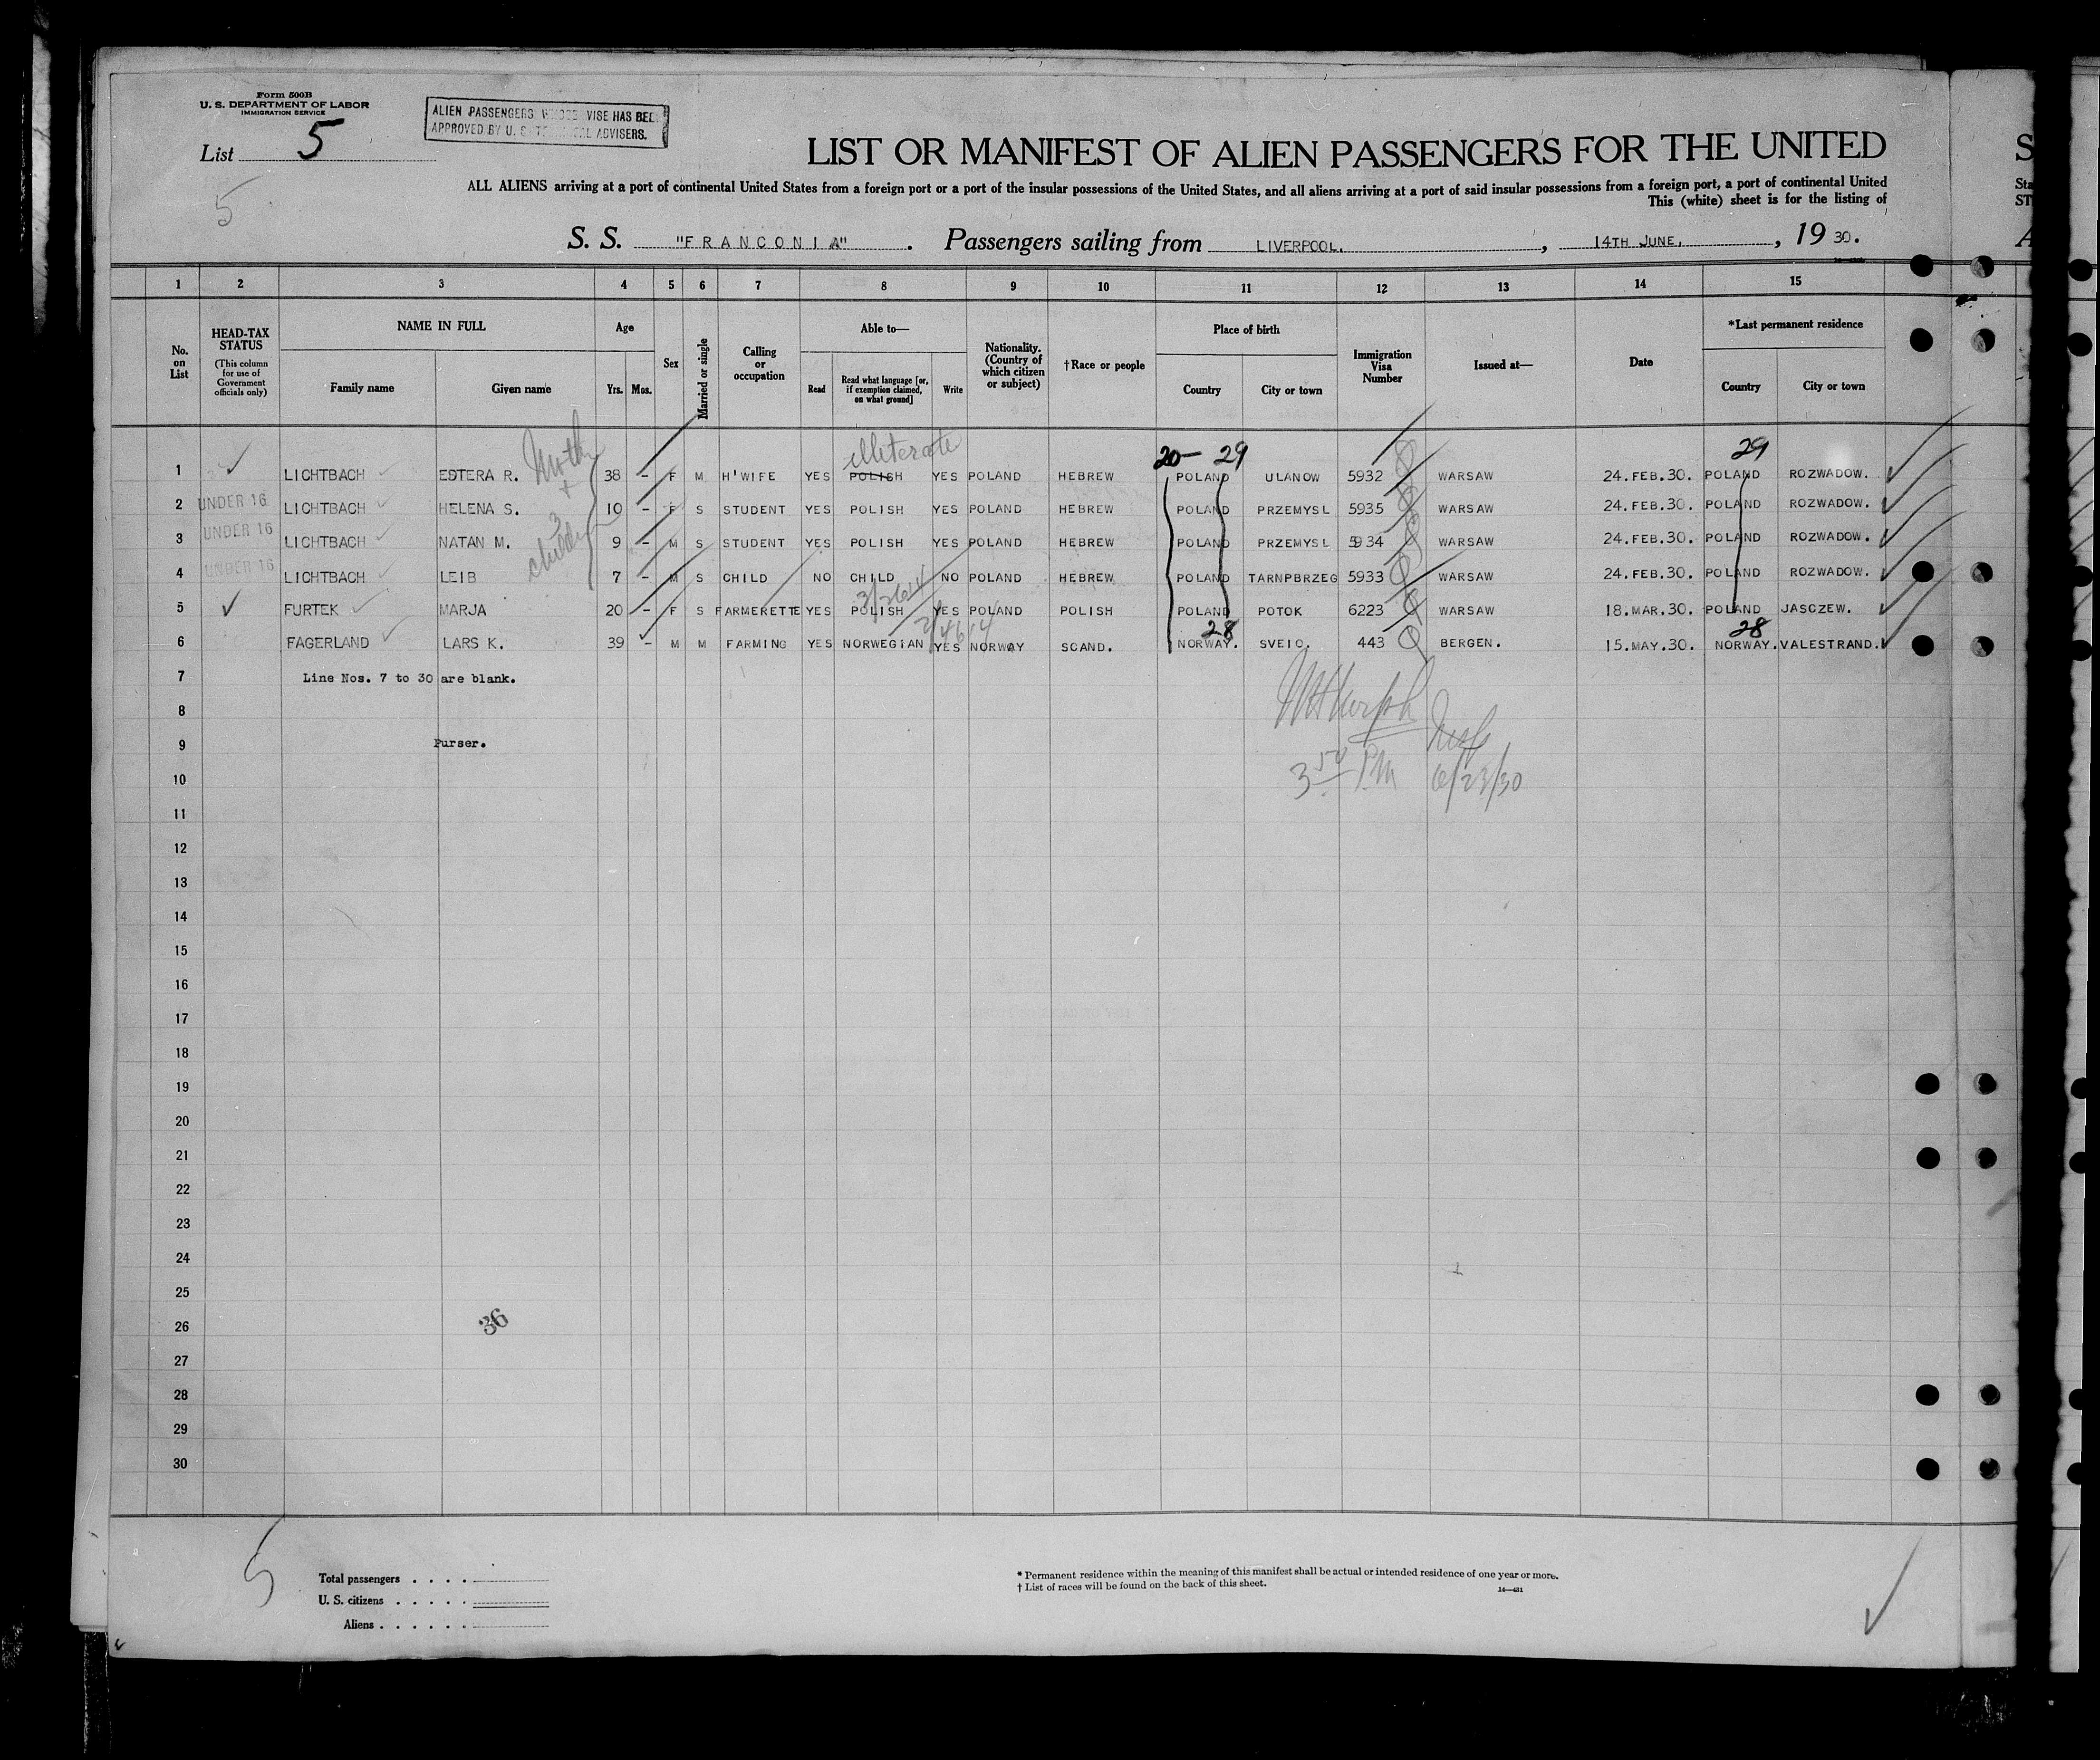 Form 500B
U. S. DEPARTMENT OF LABOR
IMMIGRATION SERVICE
ALIEN PASSENGERS WHOSE VISE HAS BEE
APPROVED BY U. S. ADVISERS.
List 5
5
LIST OR MANIFEST OF ALIEN PASSENGERS FOR THE UNITED
ALL ALIENS arriving at a port of continental United States from a foreign port or a port of the insular possessions of the United States, and all aliens arriving at a port of said insular possessions from a foreign port, a port of continental United
This (white) sheet is for the listing of
S. S. "FRANCONIA". Passengers sailing from LIVERPOOL., 14TH JUNE, , 19 30.
1 2 3 4 5 6 7 8 9 10 11 12 13 14 15
No. on List
HEAD-TAX STATUS
(This column for use of Government officials only)
NAME IN FULL
Family name Given name
Age
Yrs. Mos.
Sex
Married or single
Calling or occupation
Able to—
Read
Read what language [or, if exemption claimed, on what ground]
Write
Nationality. (Country of which citizen or subject)
†Race or people
Place of birth
Country City or town
Immigration Visa Number
Issued at—
Date
*Last permanent residence
Country City or town
Mother + 3 children
illiterate
20 — 29 29
1 LICHTBACH ESTERA R. 38 - F M H'WIFE YES POLISH YES POLAND HEBREW POLAND ULANOW 5932 WARSAW 24.FEB.30. POLAND ROZWADOW.
2 UNDER 16 LICHTBACH HELENA S. 10 - F S STUDENT YES POLISH YES POLAND HEBREW POLAND PRZEMYSL 5935 WARSAW 24.FEB.30. POLAND ROZWADOW.
3 UNDER 16 LICHTBACH NATAN M. 9 - M S STUDENT YES POLISH YES POLAND HEBREW POLAND PRZEMYSL 5934 WARSAW 24.FEB.30. POLAND ROZWADOW.
4 UNDER 16 LICHTBACH LEIB 7 - M S CHILD NO CHILD NO POLAND HEBREW POLAND TARNPBRZEG 5933 WARSAW 24.FEB.30. POLAND ROZWADOW.
5 FURTEK MARJA 20 - F S FARMERETTE YES POLISH YES POLAND POLISH POLAND POTOK 6223 WARSAW 18.MAR.30. POLAND JASCZEW.
28 28
6 FAGERLAND LARS K. 39 - M M FARMING YES NORWEGIAN YES NORWAY SCAND. NORWAY. SVEIO. 443 BERGEN. 15.MAY.30. NORWAY. VALESTRAND.
7 Line Nos. 7 to 30 are blank.
8
9 Purser.
3 50 PM 6/23/30
10
11
12
13
14
15
16
17
18
19
20
21
22
23
24
25
26
36
27
28
29
30
5
Total passengers . . . .
U. S. citizens . . . . .
Aliens . . . . . .
* Permanent residence within the meaning of this manifest shall be actual or intended residence of one year or more.
† List of races will be found on the back of this sheet.
14—431